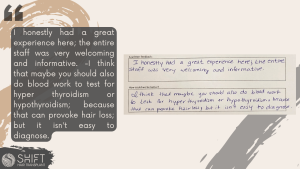 I honestly had a great
experience here; the entire
staff was very welcoming
and informative. -I think
that maybe you should also
do blood work to test for
hyper thyroidism or
hypothyroidism; because
that can provoke hair loss,
but it isn't easy to
diagnose.
I honestly had a great experience here, the entire
staff was very welcoming and informative.
I think that maybe you should also do blood work
to test for hyper thyroidism or hypothyroidism
that can provoke hair loss but it isn't easy to diagnose
SHIFT